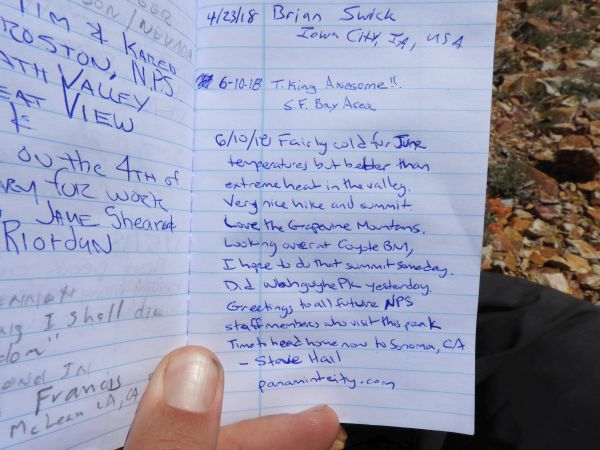 TIM & KAREN
ROSTON, NPS
ATH VALLEY
EAT VIEW
ON THE 4TH OF
FOR WORK
JANE Shearer
RIORDAN
I shall die
dom"
OND IN
Francis
McLean VA, CA
4/23/18 Brian Swick
Iowa City, IA, USA
6-10-18 T. King Awesome!!
S.F. Bay Area
6/10/18 Fairly cold for June
temperatures but better than
extreme heat in the valley.
Very nice hike and summit.
Love the Grapevine Mountains.
Looking over at Coyote BM,
I hope to do that summit someday.
Did Wahguyhe PK yesterday.
Greetings to all future NPS
staff members who visit this peak
Time to head home now to Sonoma, CA
- Steve Hall
panamintcity.com